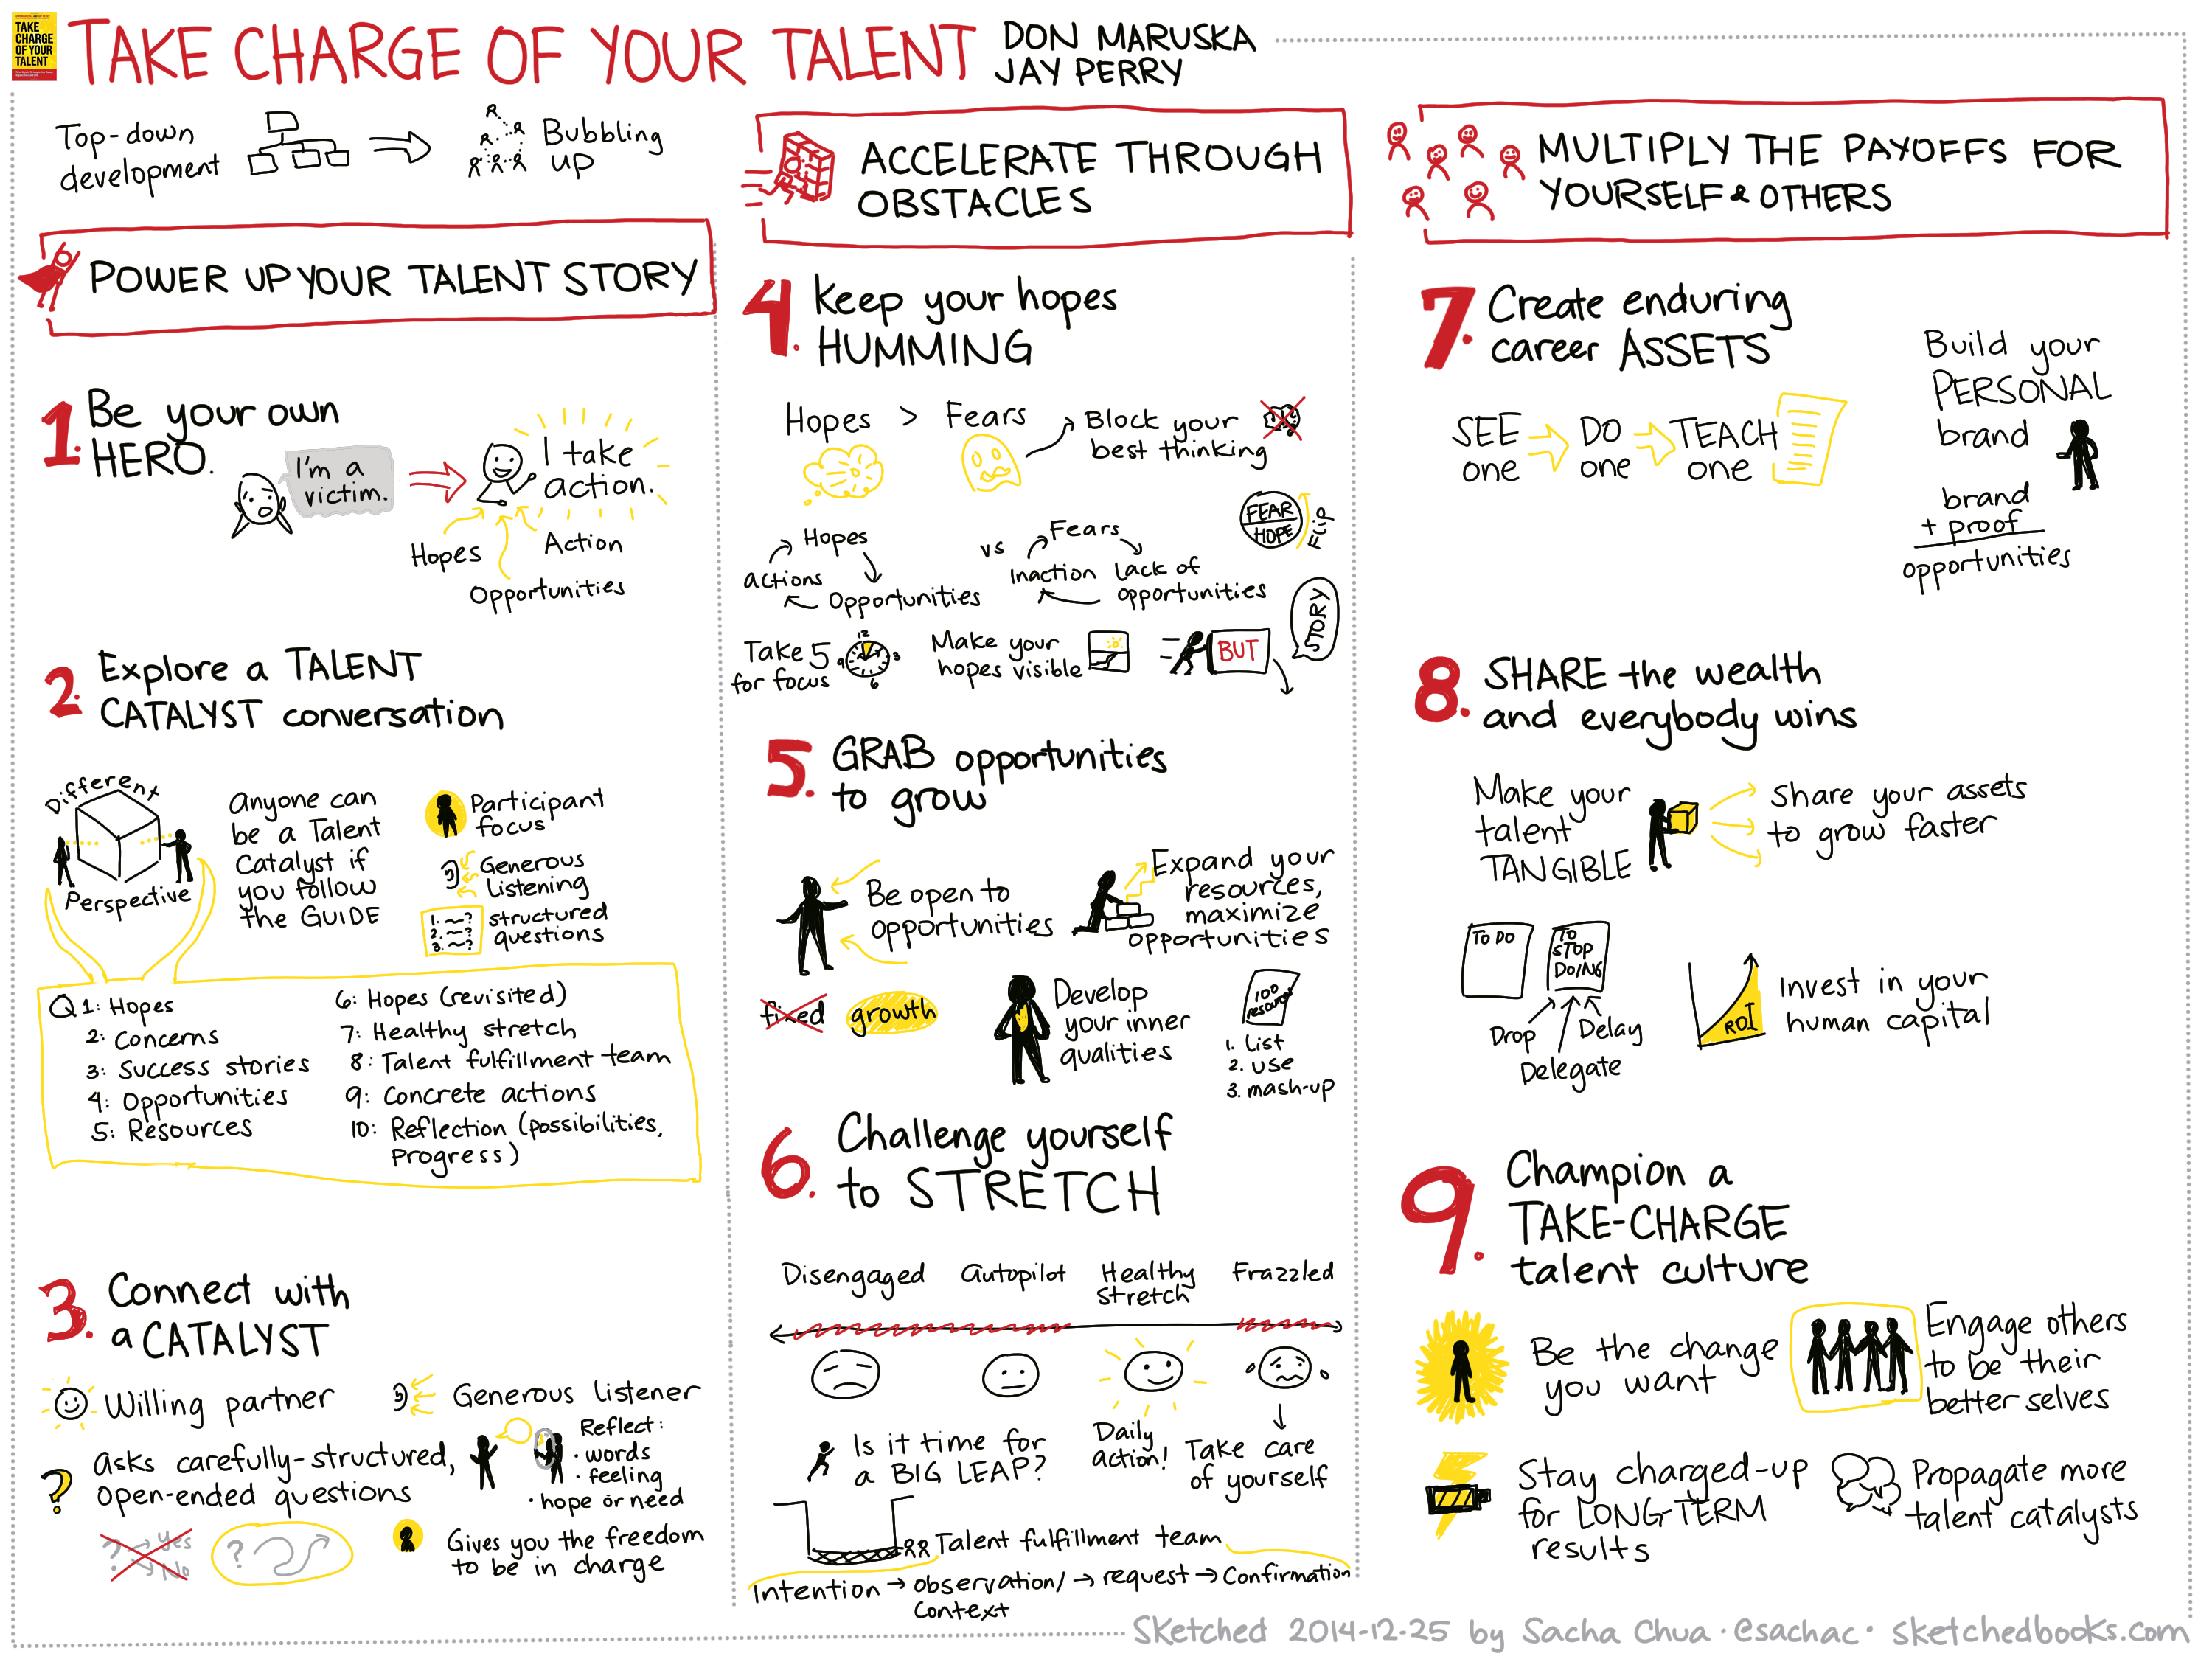 TAKE CHARGE OF YOUR TALENT
TAKE CHARGE OF YOUR TALENT
DON MARUSKA
JAY PERRY
Top-down
development
Bubbling
up
POWER UP YOUR TALENT STORY
1. Be your own
HERO.
I'm a
victim.
I take
action.
Hopes
Action
Opportunities
2. Explore a TALENT
CATALYST conversation
Different
Perspective
Anyone can
be a Talent
Catalyst if
you follow
the GUIDE
Participant
focus
Generous
listening
1. ~?
2. ~?
3. ~?
structured
questions
Q1: Hopes
2: Concerns
3: Success stories
4: Opportunities
5: Resources
6: Hopes (revisited)
7: Healthy stretch
8: Talent fulfillment team
9: Concrete actions
10: Reflection (possibilities,
Progress)
3. Connect with
a CATALYST
Willing partner
Generous listener
? Asks carefully-structured,
open-ended questions
Reflect:
· words
· feeling
· hope or need
? Yes
No
?
Gives you the freedom
to be in charge
ACCELERATE THROUGH
OBSTACLES
4. Keep your hopes
HUMMING
Hopes > Fears
Block your
best thinking
Hopes
Opportunities
actions
vs
Fears
Lack of
opportunities
Inaction
FEAR
HOPE
Flip
Take 5
for focus
12
3
6
9
Make your
hopes visible
BUT
STORY
5. GRAB opportunities
to grow
Be open to
opportunities
Expand your
resources,
maximize
opportunities
fixed growth
Develop
your inner
qualities
100
resources
1. List
2. use
3. mash-up
6. Challenge yourself
to STRETCH
Disengaged
Autopilot
Healthy
stretch
Frazzled
Is it time for
a BIG LEAP?
Daily
action!
Take care
of yourself
Talent fulfillment team
Intention → observation/ → request → Confirmation
Context
MULTIPLY THE PAYOFFS FOR
YOURSELF & OTHERS
7. Create enduring
career ASSETS
SEE
one
DO
one
TEACH
one
Build your
PERSONAL
brand
brand
+ proof
opportunities
8. SHARE the wealth
and everybody wins
Make your
talent
TANGIBLE
Share your assets
to grow faster
TO DO
TO
STOP
DOING
Drop
Delegate
Delay
ROI
Invest in your
human capital
9. Champion a
TAKE-CHARGE
talent culture
Be the change
you want
Engage others
to be their
better selves
Stay charged-up
for LONG-TERM
results
Propagate more
talent catalysts
Sketched 2014-12-25 by Sacha Chua · @sachac · sketchedbooks.com